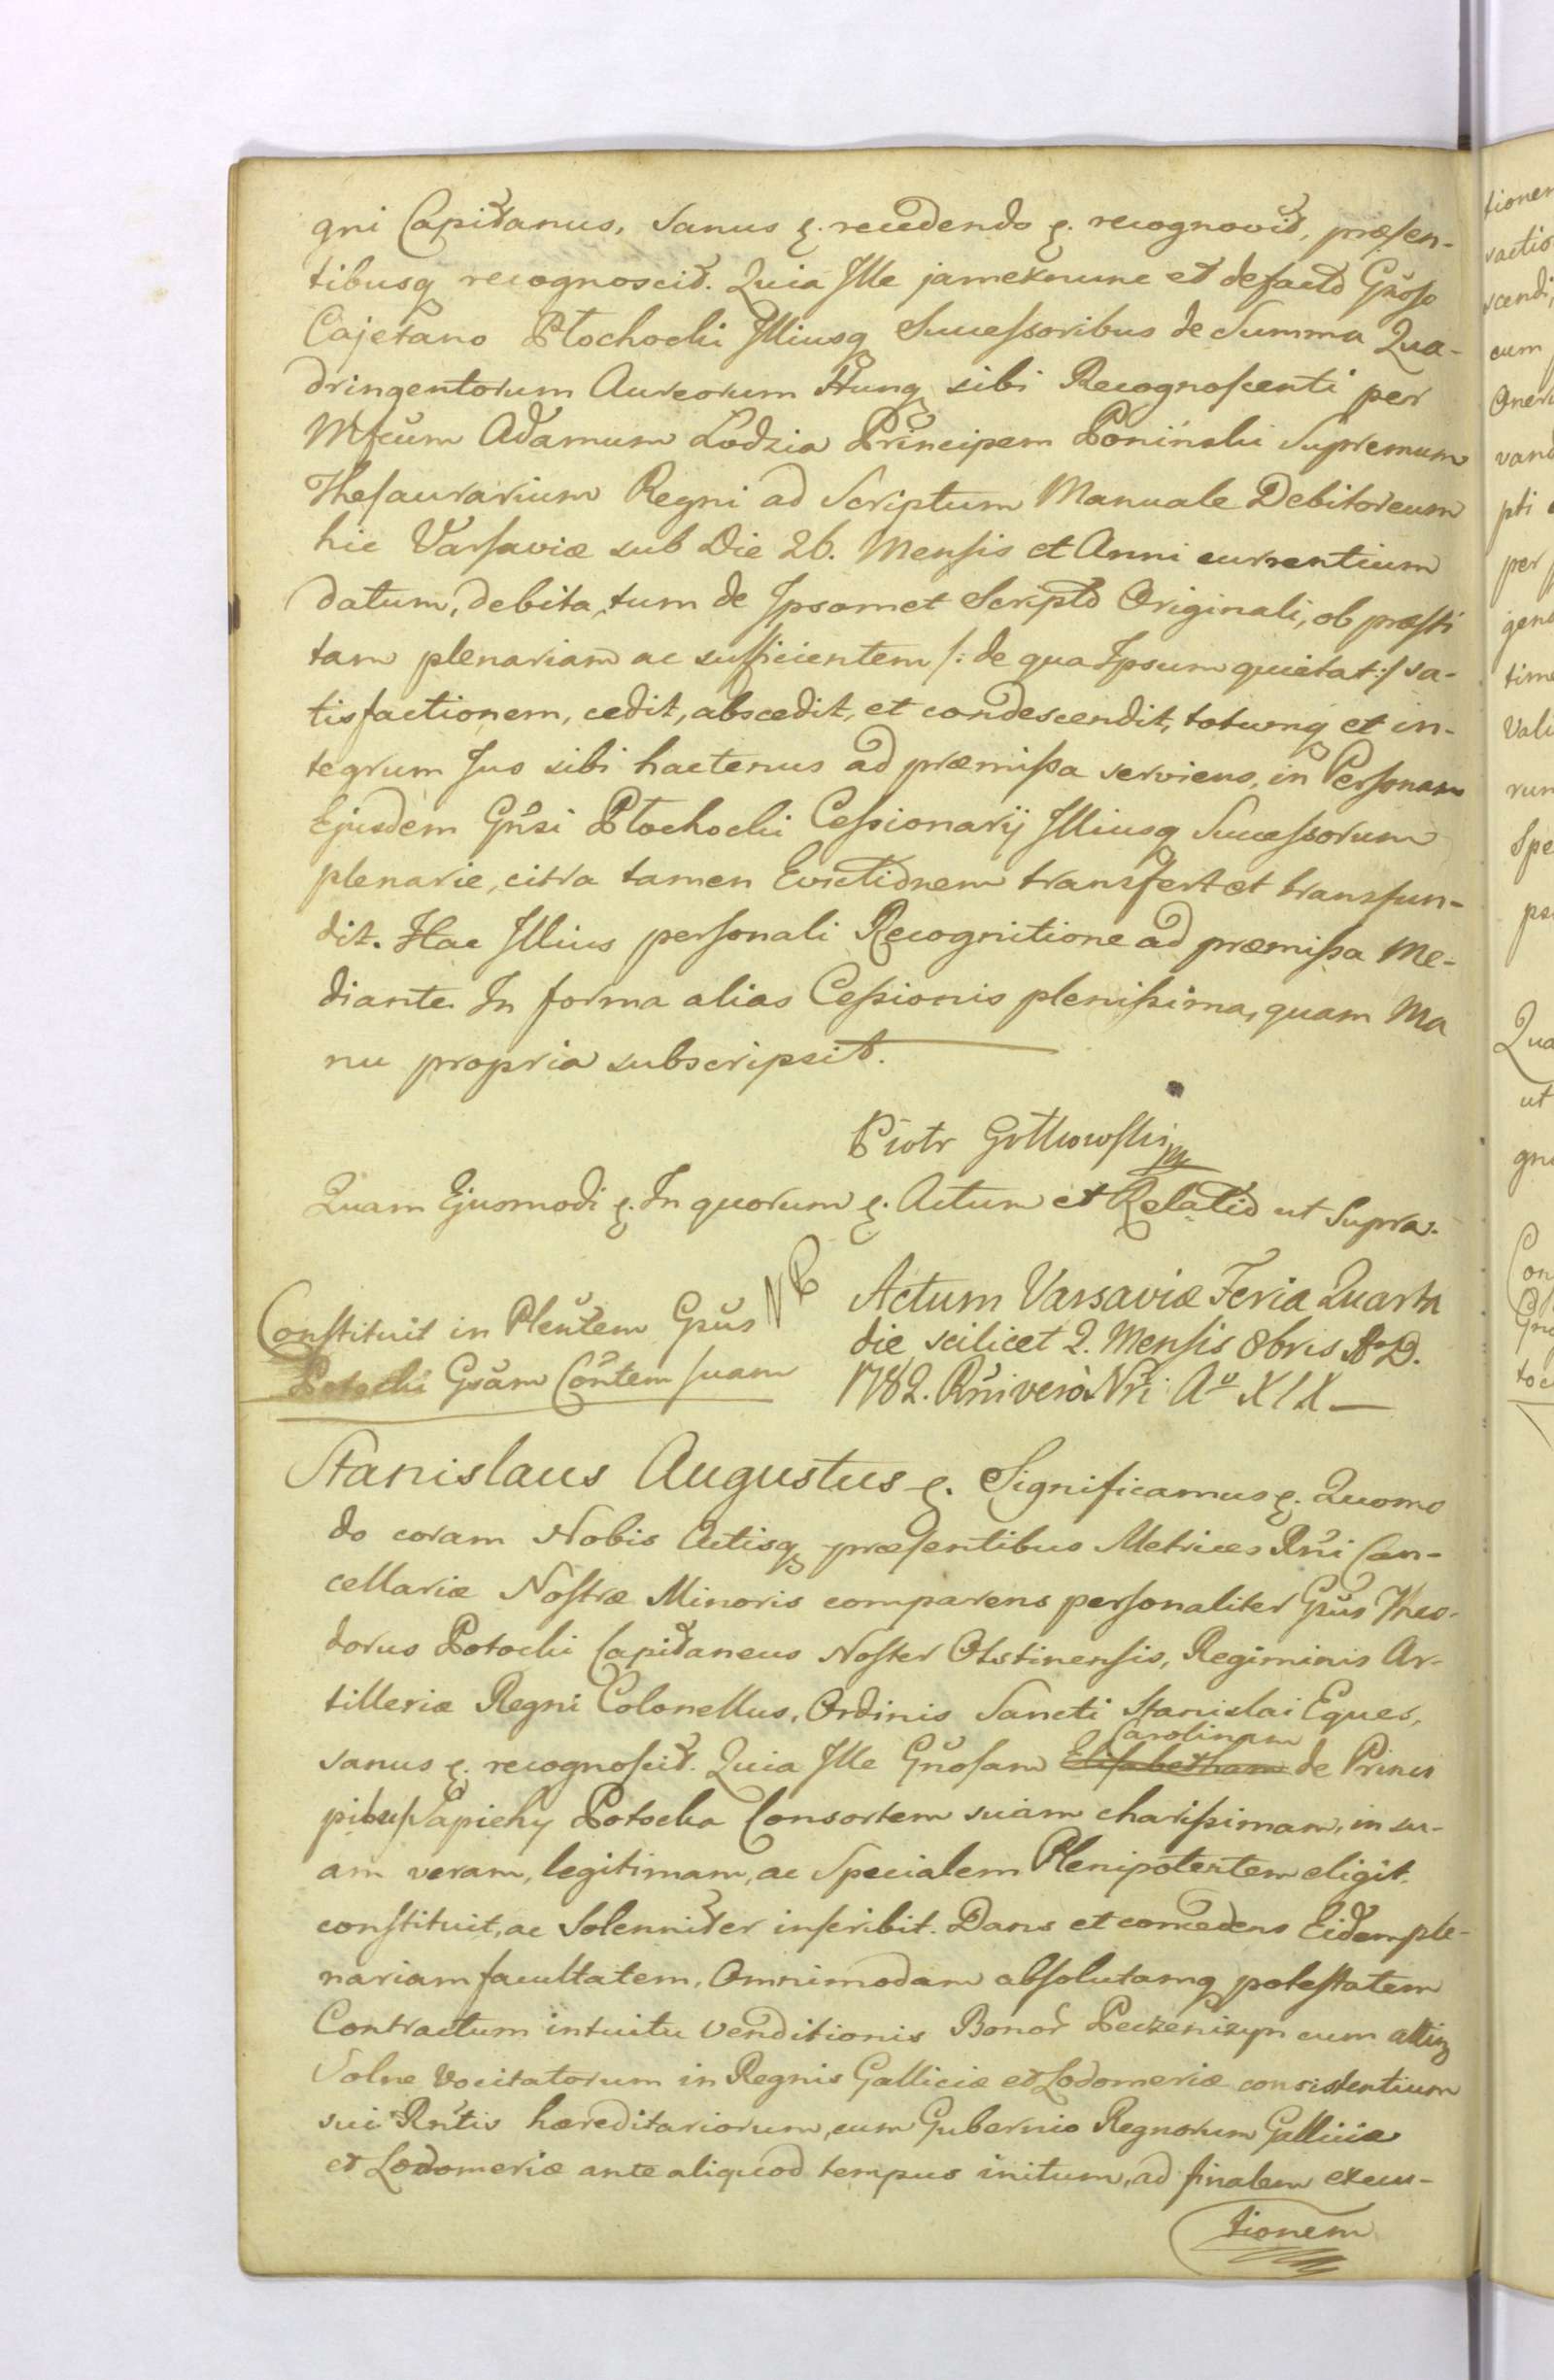 gni Capitanus, sanus &. recedendo &. recognovit, præsen-
tibusq recognoscit. Quia Ille jamexnunc et defacto Gñoso
Cajetano Płochocki Illiusq Successoribus de Summa Qua-
dringentorum Aureorum Hung sibi Recognoscenti per
Mfcum Adamum Lodzia Principem Poniński Supremum
Thesaurarium Regni ad Scriptum Manuale Debitoreum
hic Varsaviæ sub Die 26. Mensis et Anni currentium
datum, debita, tum de Ipsomet Scripto Originali, ob præsti
tam plenariam ac sufficientem /: de qua Ipsum quietat :/ sa-
tisfactionem, cedit, abscedit, et condescendit, totumq et in-
tegrum Jus sibi hactenus ad præmissa serviens, in Personam
Ejusdem Gñsi Płochocki Cessionarij Illiusq Successorum
plenarie, citra tamen Evictionem transfert et transfun-
dit. Hac Illius personali Recognitione ad præmissa Me-
diante. In forma alias Cessionis plenissima, quam Ma
nu propria subscripsit.
Piotr Gotkowski
Quam Ejusmodi &. In quorum &. Actum et Relatio ut Supra.
NB
Constituit in Plentem Gsus
Potocki Gsam Contem suam
Actum Varsaviæ Feria Quarta
die scilicet 2. Mensis 8bris A. D.
1782. Rñi vero Nri Aº XIX
Stanislaus Augustus &. Significamus &. Quomo
do coram Nobis Actisq præsentibus Metrices Rñi Can-
cellariæ Nostræ Minoris comparens personaliter Gsus Theo-
dorus Potocki Capitaneus Noster Olstinensis, Regiminis Ar-
tilleriæ Regni Colonellus, Ordinis Sancti Stanislai Eques,
Carolinam
sanus &. recognoscit. Quia Ille Gñosam Elisabetham de Princi
pibus Sapiehy Potocka Consortem suam charissimam, in su-
am veram, legitimam, ac Specialem Plenipotentem eligit,
constituit, ac Solenniter inscribit. Dans et concedens Eidem ple-
nariam facultatem, Omnimodam absolutamq potestatem
Contractum intuitu Venditionis Bonor Peczeniżyn cum attin
Solne Vocitatorum in Regnis Galliciæ et Lodomeriæ consistentium
sui Rñtis hæreditariorum, cum Gubernio Regnorum Galliciæ
et Lodomeriæ ante aliquod tempus initum, ad finalem execu-
tionem